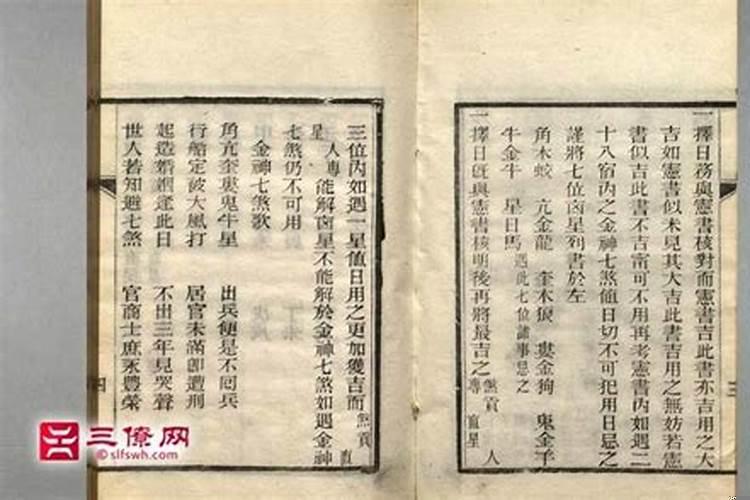 一擇日務與憲書核對而憲書吉此書亦吉用之大
吉如憲書似未見其大吉此書吉用之無妨若憲
書似吉此書不吉甯可不用再考憲書內如遇二
十八宿內之金神七煞值日切不可犯用日忌之
謹將七位凶星列書於左
角木蛟 亢金龍 奎木狼 婁金狗 鬼金羊
牛金牛 星日馬 遇此七位諸事忌之
一擇日旣與憲書核明後再將最吉之煞貢專 直星 人
三
三位內如遇一星值日用之更加獲吉而煞貢 直
星 人專 能解凶星不能解於金神七煞如遇金神
七煞仍不可用
金神七煞歌
角亢奎婁鬼牛星 出兵便是不囘兵
行船定被大風打 居官未滿卽遭刑
起造婚姻逢此日 不出三年見哭聲
世人若知避七煞 官商士庶永豐榮
四
三僚网
©slfswh.com